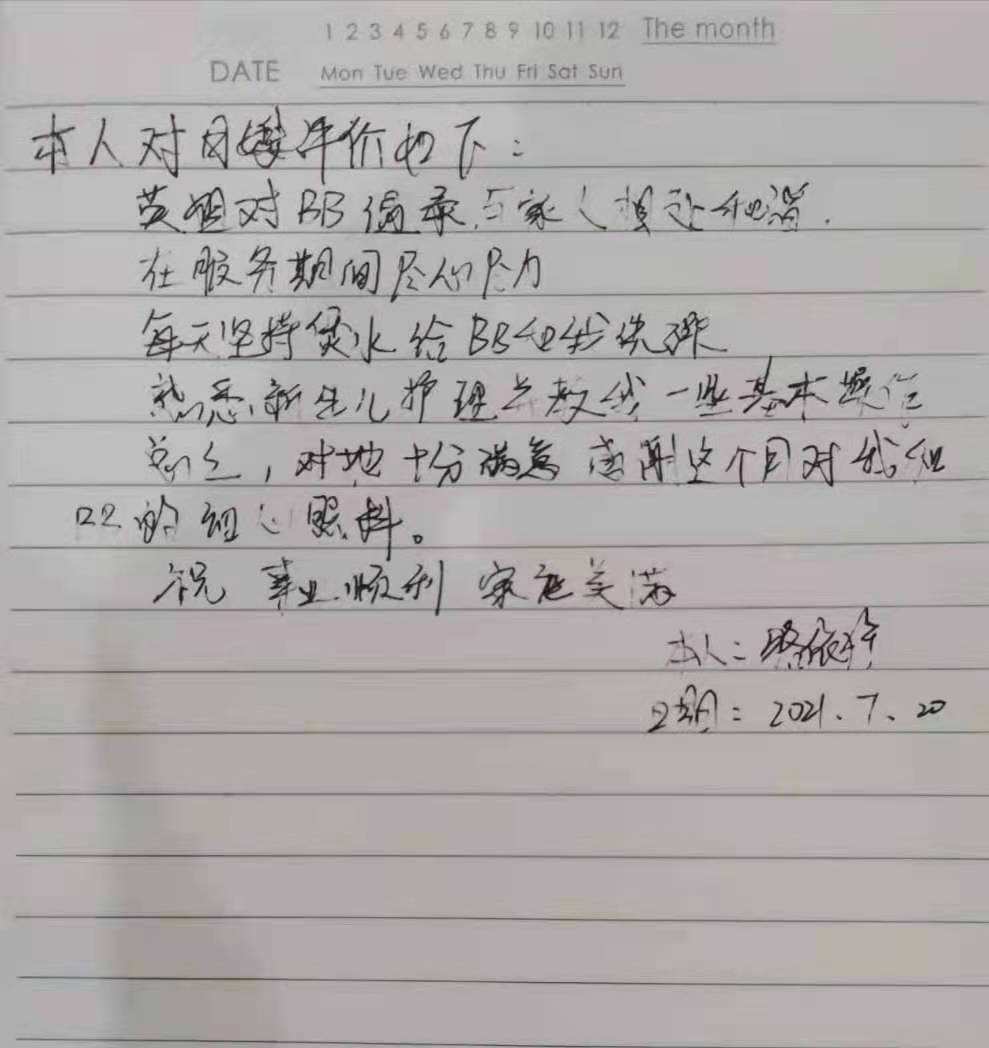 1 2 3 4 5 6 7 8 9 10 11 12 The month
DATE Mon Tue Wed Thu Fri Sat Sun
本人对月嫂评价如下：
英姐对BB 与家人相处和谐.
在服务期间尽心尽力
每天坚持煲水给BB和我洗澡
熟悉新生儿护理并教我一些基本操作
总之，对她十分满意 感谢这个月对我和
的细心照料。
祝 事业顺利 家庭美满
本人：依
日期：2021.7.20